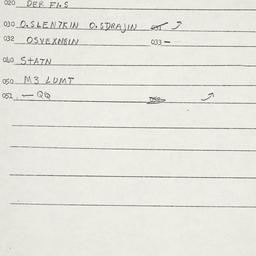 020 DER FLS
030 O.SLENTKIN O.SDRAJIN
032 OSVEXNBIN 033 —
040 STATN
050 M3 LUMT
051 — QQ